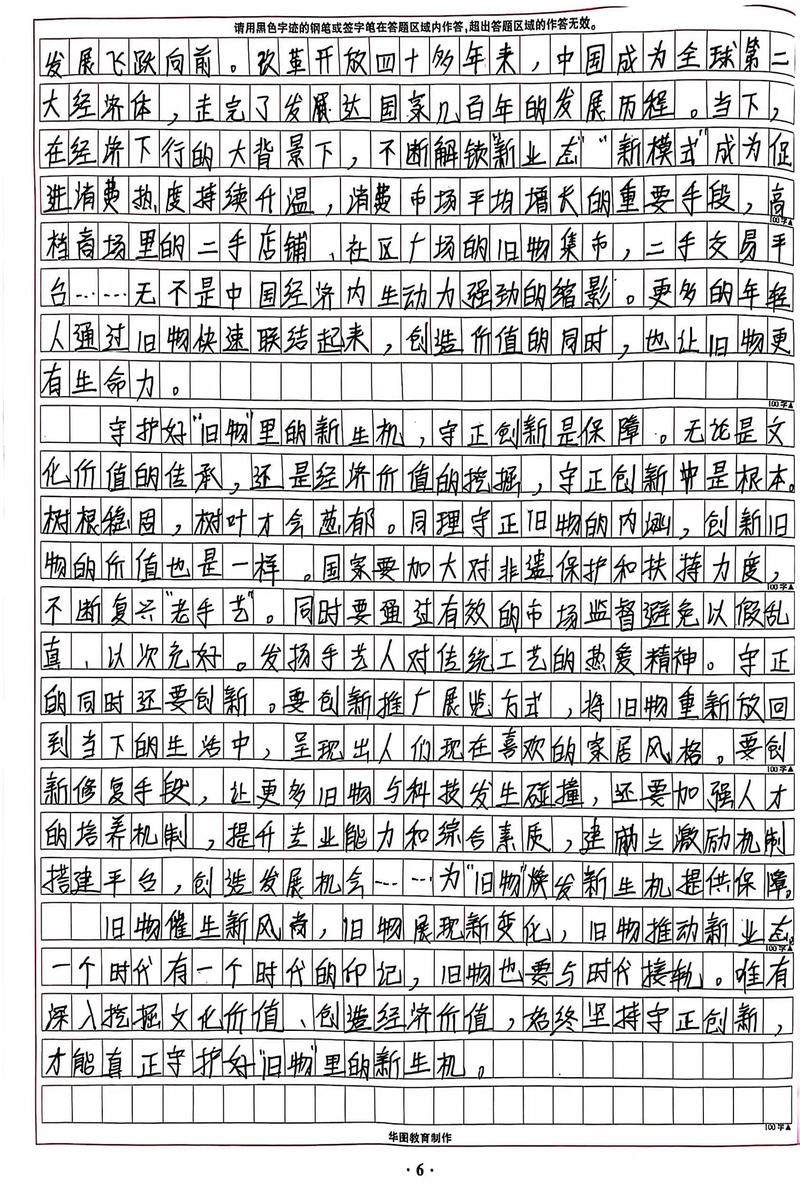 请用黑色字迹的钢笔或签字笔在答题区域内作答,超出答题区域的作答无效。
发展飞跃向前。改革开放四十多年来，中国成为全球第二
大经济体，走完了发展达国家几百年的发展历程。当下，
在经济下行的大背景下，不断解锁"新业态""新模式"成为促
进消费热度持续升温，消费市场平均增长的重要手段，高
100字▲
档商场里的二手店铺、社区广场的旧物集市，二手交易平
台……无不是中国经济内生动力强劲的缩影。更多的年轻
人通过旧物快速联结起来，创造价值的同时，也让旧物更
有生命力。
100字▲
守护好"旧物"里的新生机，守正创新是保障。无论是文
化价值的传承，还是经济价值的挖掘，守正创新中是根本。
树根稳固，树叶才会葱郁。同理守正旧物的内涵，创新旧
物的价值也是一样。国家要加大对非遗保护和扶持力度，
100字▲
不断复兴"老手艺"。同时要通过有效的市场监督避免以假乱
真、以次充好。发扬手艺人对传统工艺的热爱精神。守正
的同时还要创新。要创新推广展览方式，将旧物重新放回
到当下的生活中，呈现出人们现在喜欢的家居风格。要创
100字▲
新修复手段，让更多旧物与科技发生碰撞，还要加强人才
的培养机制，提升专业能力和综合素质，建励立激励机制
搭建平台，创造发展机会……为"旧物"焕发新生机提供保障。
旧物催生新风尚，旧物展现新变化，旧物推动新业态。
100字▲
一个时代有一个时代的印记，旧物也要与时代接轨。唯有
深入挖掘文化价值、创造经济价值，始终坚持守正创新，
才能真正守护好"旧物"里的新生机。
100字▲
华图教育制作
·6·